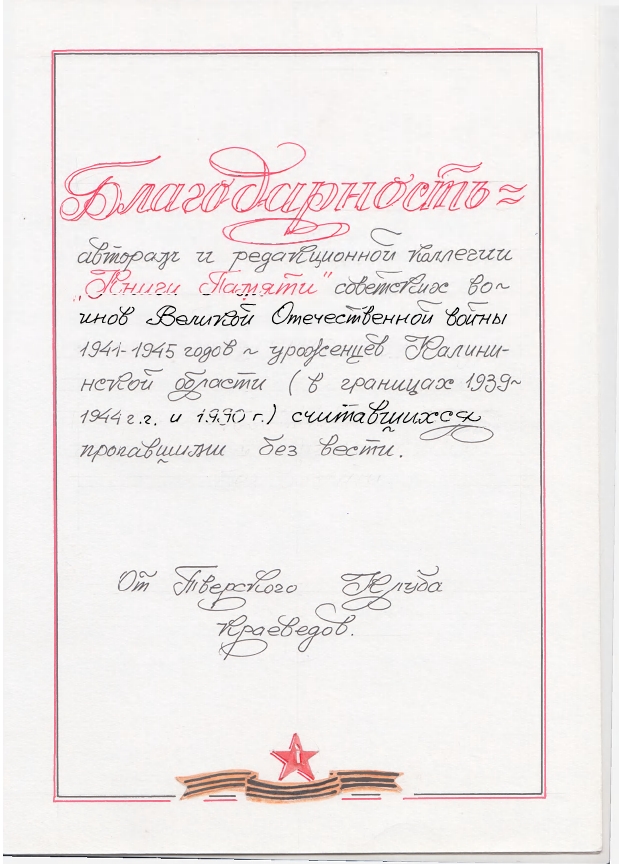 Благодарность ~
авторам и редакционной коллегии
„Книги Памяти" советских во-
инов Великой Отечественной войны
1941-1945 годов ~ уроженцев Калини-
нской области (в границах 1939~
1944 г.г. и 1990 г.) считавшихся
пропавшими без вести.
От Тверского Клуба
краеведов.